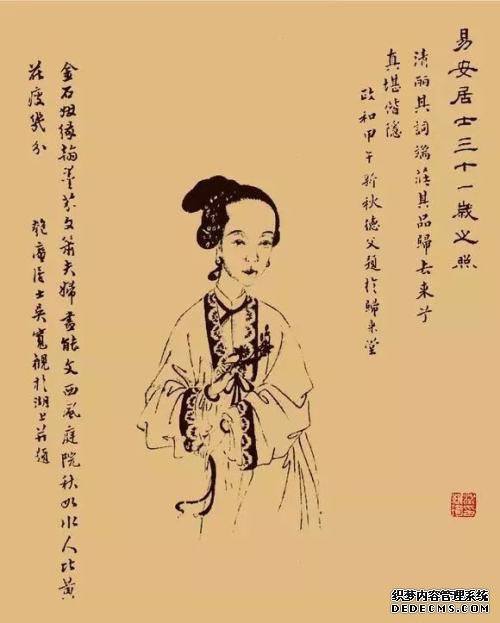 易安居士三十一歲之照
清麗其詞端莊其品歸去來兮
真堪偕隱
政和甲午新秋德父題於歸來堂
金石姻緣翰墨芬文簫夫婦盡能文西風庭院秋如水人比黃
花瘦幾分 匏庵居士吳寬觀於湖上并題
织梦内容管理系统
DEDECMS.COM